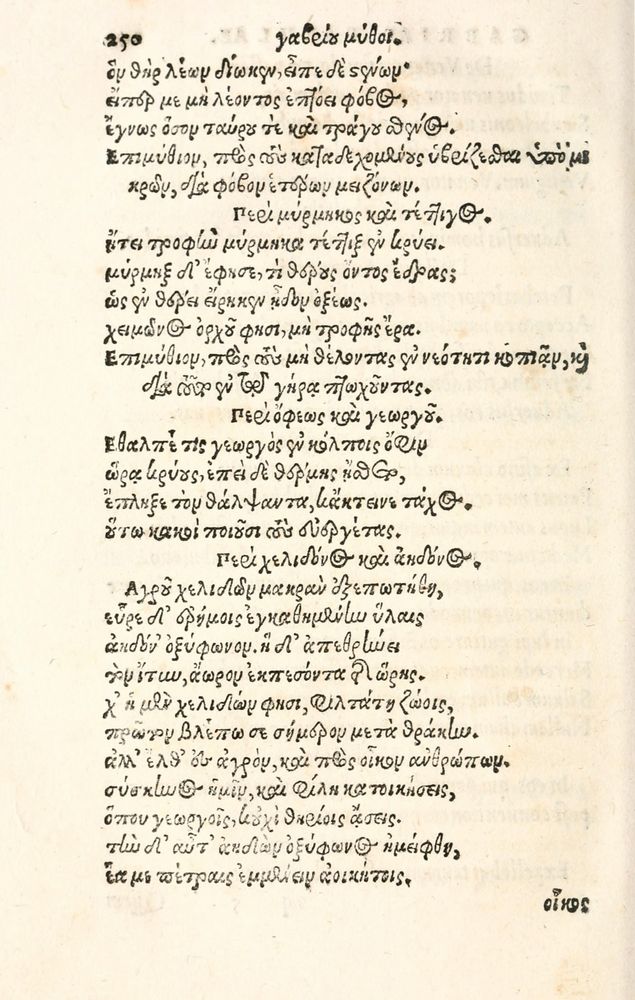 250 γαβρίου μύθοι.
ὃν θὴρ λέων διώκων, εἶπε δὲ στένων·
εἴπερ με μὴ λέοντος ἐπτόει φόβος,
ἔγνως ὅσον ταύρου τε καὶ τράγου σθένος.
Επιμύθιον, πρὸς τοὺς καταδεχομένους ὑβρίζεσθαι ὑπὸ μι
κρῶν, διὰ φόβον ἑτέρων μειζόνων.
Περὶ μύρμηκος καὶ τέττιγος.
ᾔτει τροφὴν μύρμηκα τέττιξ ἐν κρύει.
μύρμηξ δ' ἔφησε, τί θέρους ὄντος ἔδρας;
ὡς ἐν θέρει εἴρηκεν ᾖδον ὀξέως.
χειμῶνος ὀρχοῦ φησι, μὴ τροφῆς ἔρα.
Επιμύθιον, πρὸς τοὺς μὴ θέλοντας ἐν νεότητι κοπιᾷν, καὶ
διὰ τοῦτο ἐν τῷ γήρᾳ πτωχοῦντας.
Περὶ ὄφεως καὶ γεωργοῦ.
Εθαλπέ τις γεωργὸς ἐν κόλποις ὄφιν
ὥρᾳ κρύους, ἐπεὶ δὲ θέρμης ᾔσθετο,
ἔπληξε τὸν θάλψαντα, κἄκτεινε τάχος.
οὕτω κακοὶ ποιοῦσι τοὺς εὐεργέτας.
Περὶ χελιδόνος καὶ ἀηδόνος.
Αγροῦ χελιδὼν μακρὰν ἐξεπωτήθη,
εὗρε δ' ἐρήμοις ἐγκαθημένην ὕλαις
ἀηδόν' ὀξύφωνον. ἡ δ' ἀπεθρήνει
τὸν ἴτυν, ἄωρον ἐκπεσόντα τῆς ὥρης.
χ' ἡ μὲν χελιδών φησι, φιλτάτη ζώοις,
πρῶτον βλέπω σε σήμερον μετὰ θράκην.
ἀλλ' ἔλθ' ἐς ἀγρὸν, καὶ πρὸς οἶκον ἀνθρώπων.
σύσκηνος ἡμῖν, καὶ φίλη κατοικήσεις,
ὅπου γεωργοῖς, κοὐχὶ θηρίοις ᾄσεις.
τὴν δ' αὖτ' ἀηδὼν ὀξύφωνος ἠμείφθη,
ἔα με πέτραις ἐμμένειν ἀοικήτοις.
οἶκος